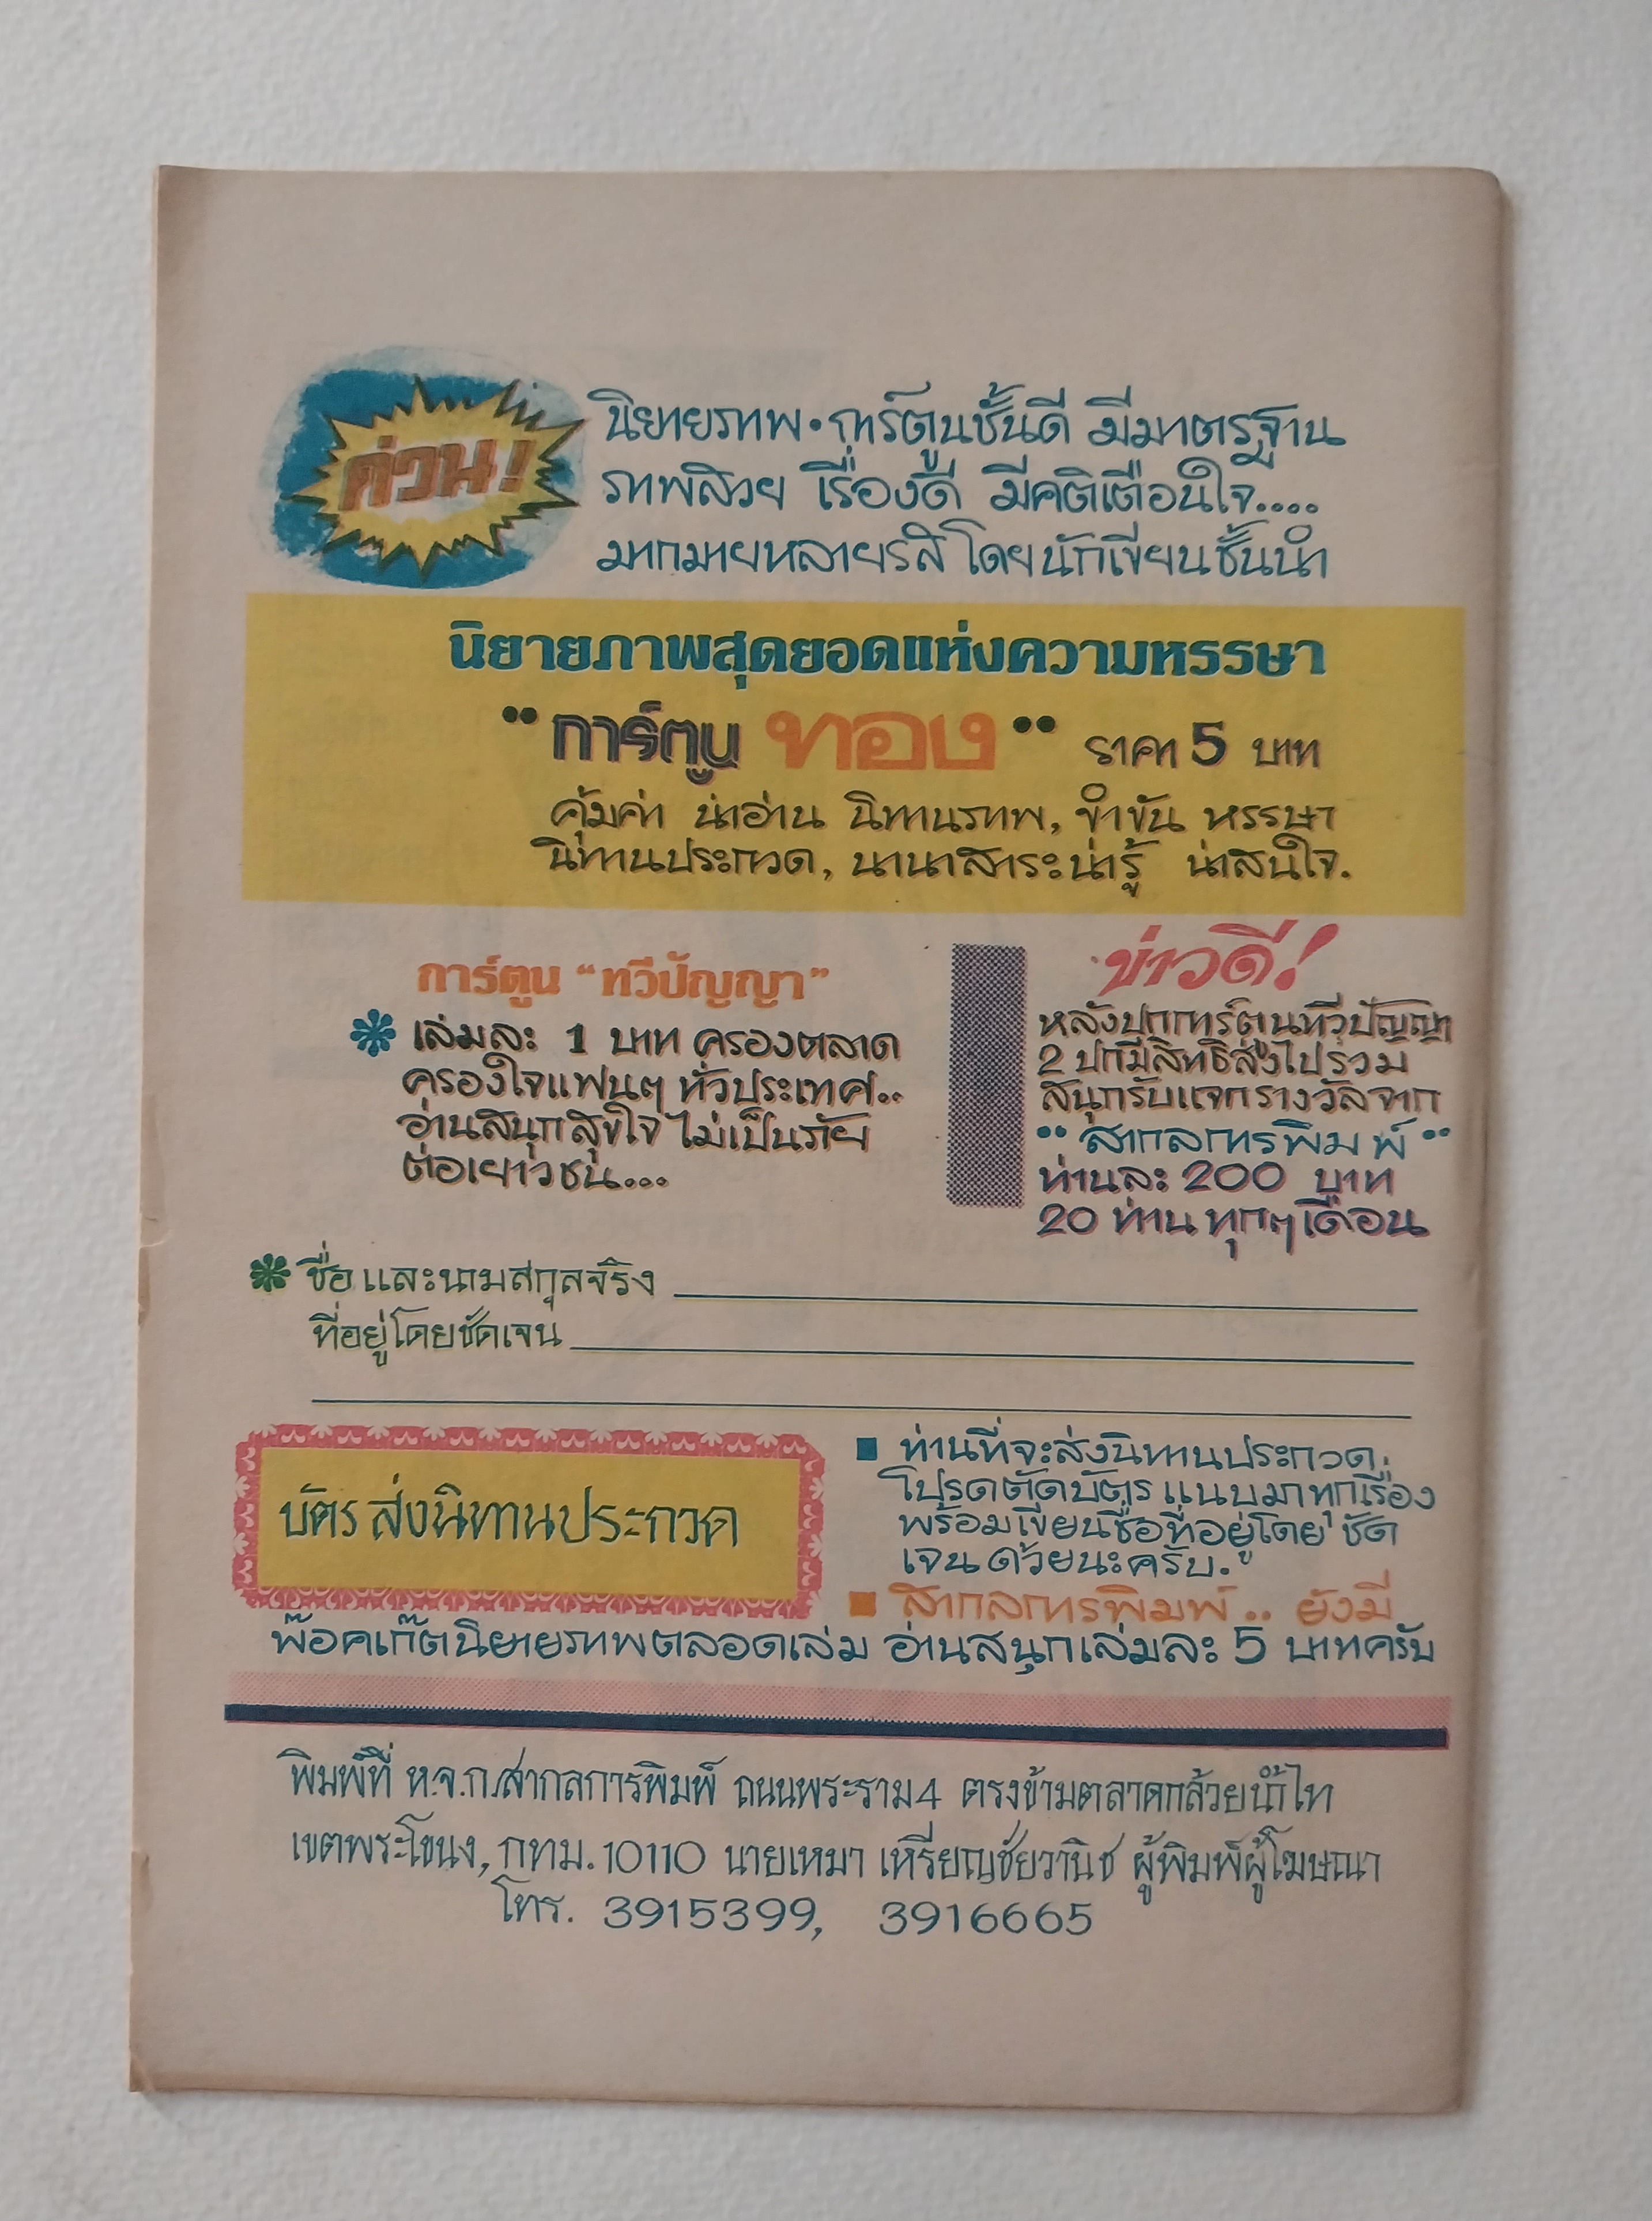 ด่วน!
นิยายภาพ•การ์ตูนชั้นดี มีมาตรฐาน
ภาพสวย เรื่องดี มีคติเตือนใจ....
มากมายหลายรส โดยนักเขียนชั้นนำ
นิยายภาพสุดยอดแห่งความหรรษา
"การ์ตูน ทอง" ราคา 5 บาท
คุ้มค่า น่าอ่าน นิทานภาพ, ขำขัน หรรษา
นิทานประกวด, นานาสาระน่ารู้ น่าสนใจ.
การ์ตูน "ทวีปัญญา"
เล่มละ 1 บาท ครองตลาด
ครองใจแฟนๆ ทั่วประเทศ..
อ่านสนุกสุขใจ ไม่เป็นภัย
ต่อเยาวชน...
ข่าวดี!
หลังปกการ์ตูนทวีปัญญา
2 ปกมีสิทธิ์ส่งไปร่วม
สนุกรับแจกรางวัลจาก
"สากลการพิมพ์"
ท่านละ 200 บาท
20 ท่าน ทุกๆเดือน
ชื่อและนามสกุลจริง
ที่อยู่โดยชัดเจน
บัตรส่งนิทานประกวด
ท่านที่จะส่งนิทานประกวด.
โปรดตัดบัตร แนบมาทุกเรื่อง
พร้อมเขียนชื่อที่อยู่โดย ชัด
เจน ด้วยนะครับ.
สากลการพิมพ์.. ยังมี
พ๊อคเก๊ตนิยายภาพตลอดเล่ม อ่านสนุกเล่มละ 5 บาทครับ
พิมพ์ที่ ห.จ.ก.สากลการพิมพ์ ถนนพระราม4 ตรงข้ามตลาดกล้วยน้ำไท
เขตพระโขนง, กทม. 10110 นายเหมา เหรียญชัยวานิช ผู้พิมพ์ผู้โฆษณา
โทร. 3915399, 3916665